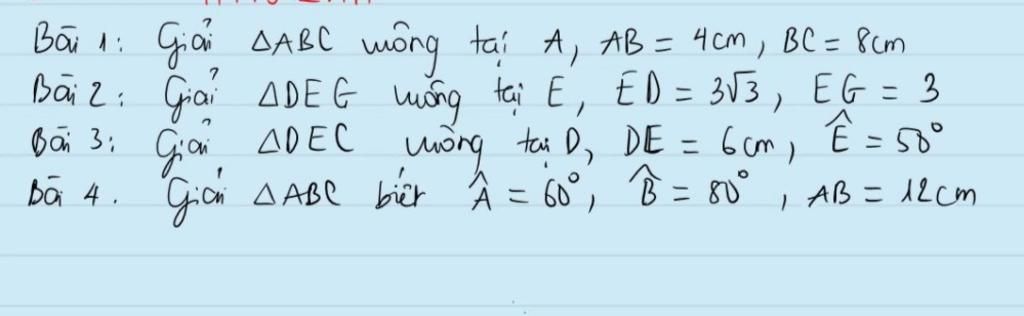 Bài 1: Giải △ABC vuông tại A, AB = 4cm, BC = 8cm
Bài 2: Giải △DEG vuông tại E, ED = 3√3, EG = 3
Bài 3: Giải △DEC vuông tại D, DE = 6cm, Ê = 50°
Bài 4. Giải △ABC biết Â = 60°, B̂ = 80°, AB = 12cm